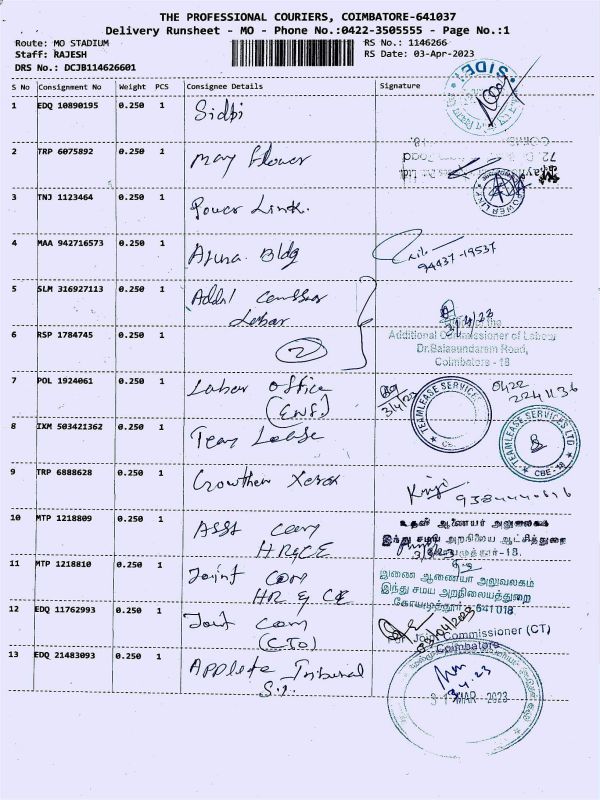 THE PROFESSIONAL COURIERS, COIMBATORE-641037
Delivery Runsheet - MO - Phone No.:0422-3505555 - Page No.:1
Route: MO STADIUM
RS No.: 1146266
Staff: RAJESH
RS Date: 03-Apr-2023
DRS No.: DCJB114626601
S No Consignment No Weight PCS Consignee Details Signature
1 EDQ 10890195 0.250 1 Sidbi
SIDBI
2 TRP 6075892 0.250 1 May flower
3 TNJ 1123464 0.250 1 Power Link.
POWER LINK
4 MAA 942716573 0.250 1 Aruna Bldg
94437-19537
5 SLM 316927113 0.250 1 Addnl
Labar
3/4/23
Additional Commissioner of Labour
Dr.Balasundaram Road,
Coimbatore - 18
6 RSP 1784745 0.250 1 2
7 POL 1924061 0.250 1 Labar office
(ENF)
3/4/23
TEAMLEASE SERVICES
0422
2241136
8 IXM 503421362 0.250 1 Team Lease
TEAMLEASE SERVICES LTD
CBE-18
9 TRP 6888628 0.250 1 Crowther Xerox
10 MTP 1218809 0.250 1 Asst Com
HR&CE
உதவி ஆணையர் அலுவலகம்
இந்து சமய அறநிலைய ஆட்சித்துறை
11 MTP 1218810 0.250 1 Joint Com
HR & CE
இணை ஆணையர் அலுவலகம்
இந்து சமய அறநிலையத்துறை
கோயமுத்தூர் - 641 018
12 EDQ 11762993 0.250 1 Joit Com
(CTO)
03/04/2023
For Joint Commissioner (CT)
Coimbatore
13 EDQ 21483093 0.250 1 Applete Tribunal
S.T.
3.4.23
31 MAR 2023